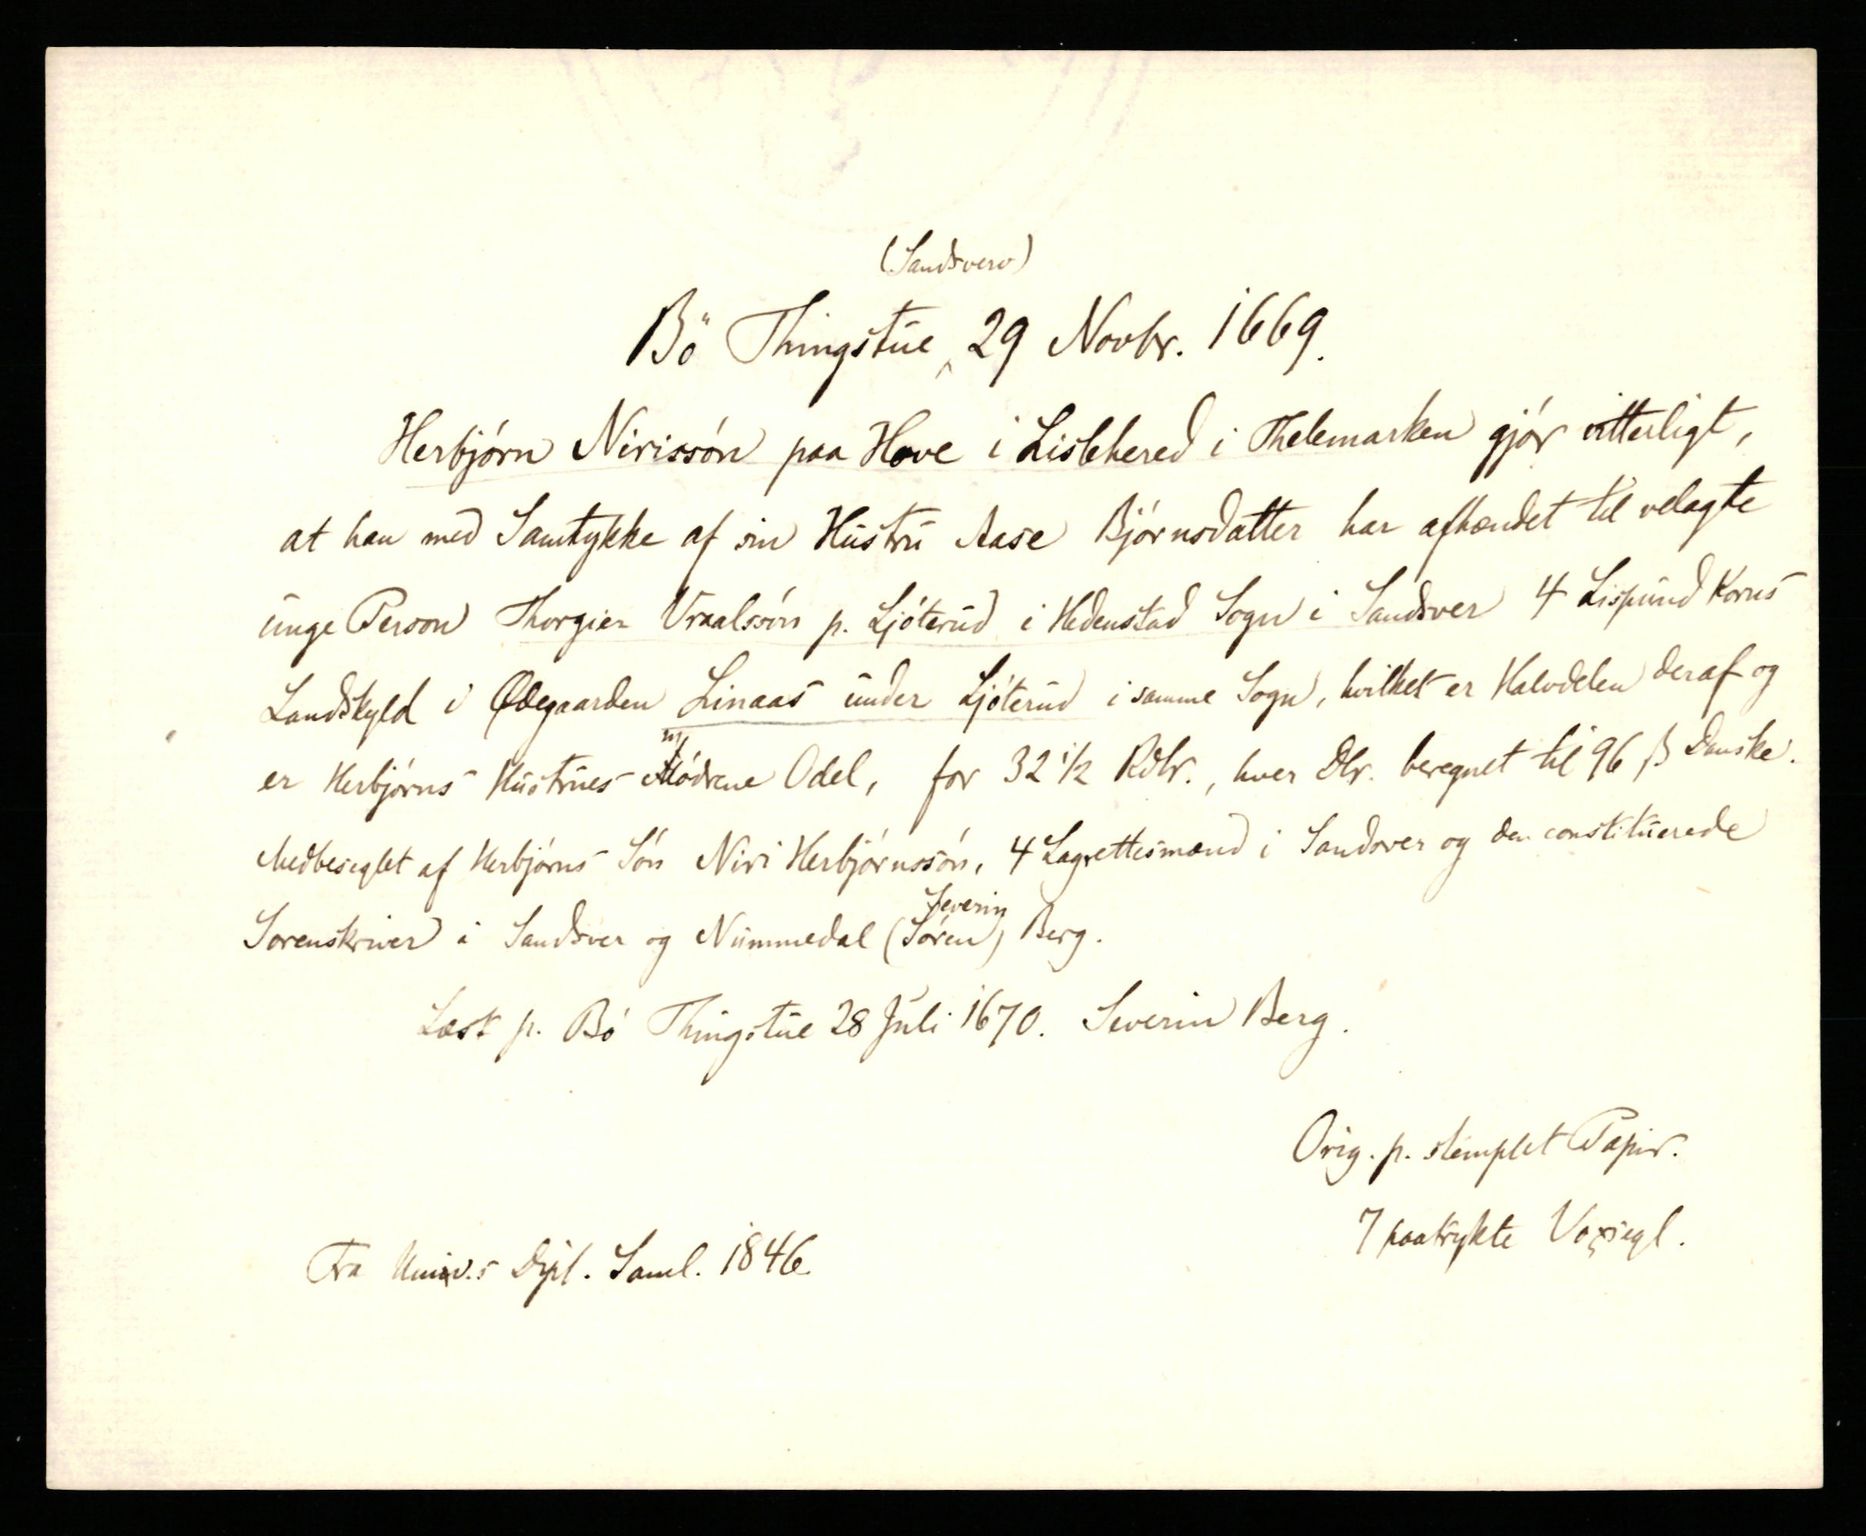 (Sandsverv)
Bö Thingstue, 29 Novbr. 1669.
Herbjórn Nirissón paa Hove i Lislehered i Thelemarken gjór vitterligt,
at han med Samtykke af sin Hustru Aase Bjórnsdatter har afhændet til velagte
unge Person Thorgier Vraalssón p. Ljóterud i Hedenstad Sogn i Sandsver 4 Lispund Korns
Landskyld i Ødegaarden Linaas under Ljóterud i samme Sogn, hvilket er Halvdelen deraf og
er Herbjórns Hustrues Módrene Odel, for 32 1/2 Rdlr., hver Dlr. beregnet til 96 ß Danske.
Medbeseglet af Herbjórns Són Niri Herbjórnssón, 4 Lagrettesmænd i Sandsver og den constituerede
Severin
Sorenskriver i Sandsver og Nummedal (Sóren) Berg.
Læst p. Bó Thingstue 28 Juli 1670. Severin Berg.
Orig. p. stemplet Papir.
7 paatrykte Voxsegl.
Fra Univ.s Dipl. Saml. 1846.